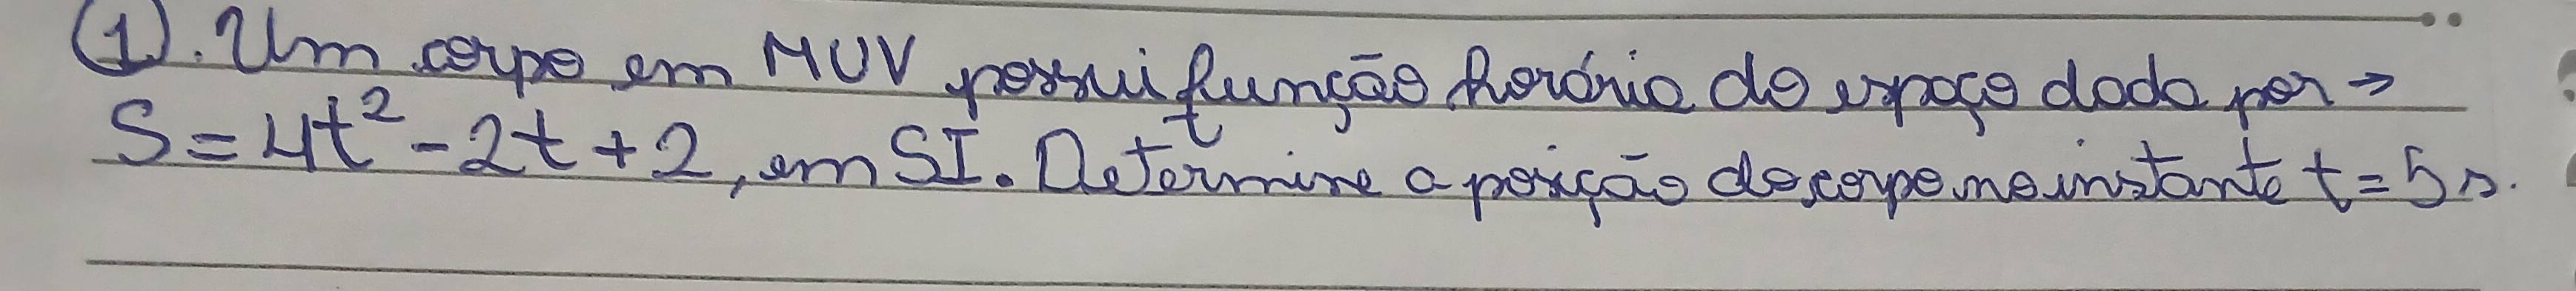 (1). Um corpo em MUV possui função horária do espaço dada por →
S = 4t² - 2t + 2, em SI. Determine a posição do corpo no instante t = 5 s.